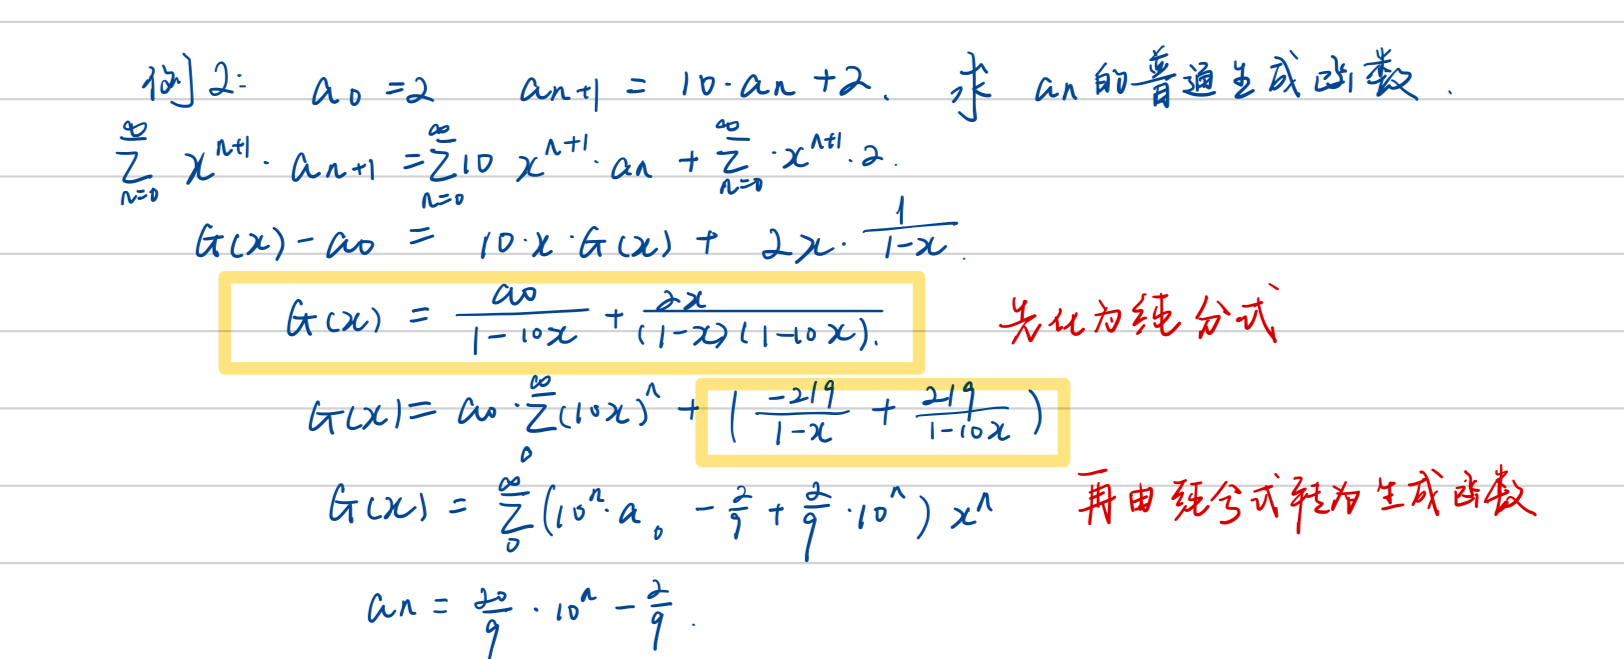 例2: a₀ = 2 aₙ₊₁ = 10·aₙ + 2. 求 aₙ 的普通生成函数.
∑_{n=0}^{∞} x^{n+1}·a_{n+1} = ∑_{n=0}^{∞} 10 x^{n+1}·aₙ + ∑_{n=0}^{∞}·x^{n+1}·2.
G(x) - a₀ = 10·x·G(x) + 2x·\frac{1}{1-x}.
G(x) = \frac{a₀}{1-10x} + \frac{2x}{(1-x)(1-10x).} 先化为纯分式
G(x) = a₀·∑_{0}^{∞}(10x)^n + (\frac{-2/9}{1-x} + \frac{2/9}{1-10x})
G(x) = ∑_{0}^{∞}(10^n·a₀ - \frac{2}{9} + \frac{2}{9}·10^n) x^n 再由纯分式转为生成函数
aₙ = \frac{20}{9}·10^n - \frac{2}{9}.